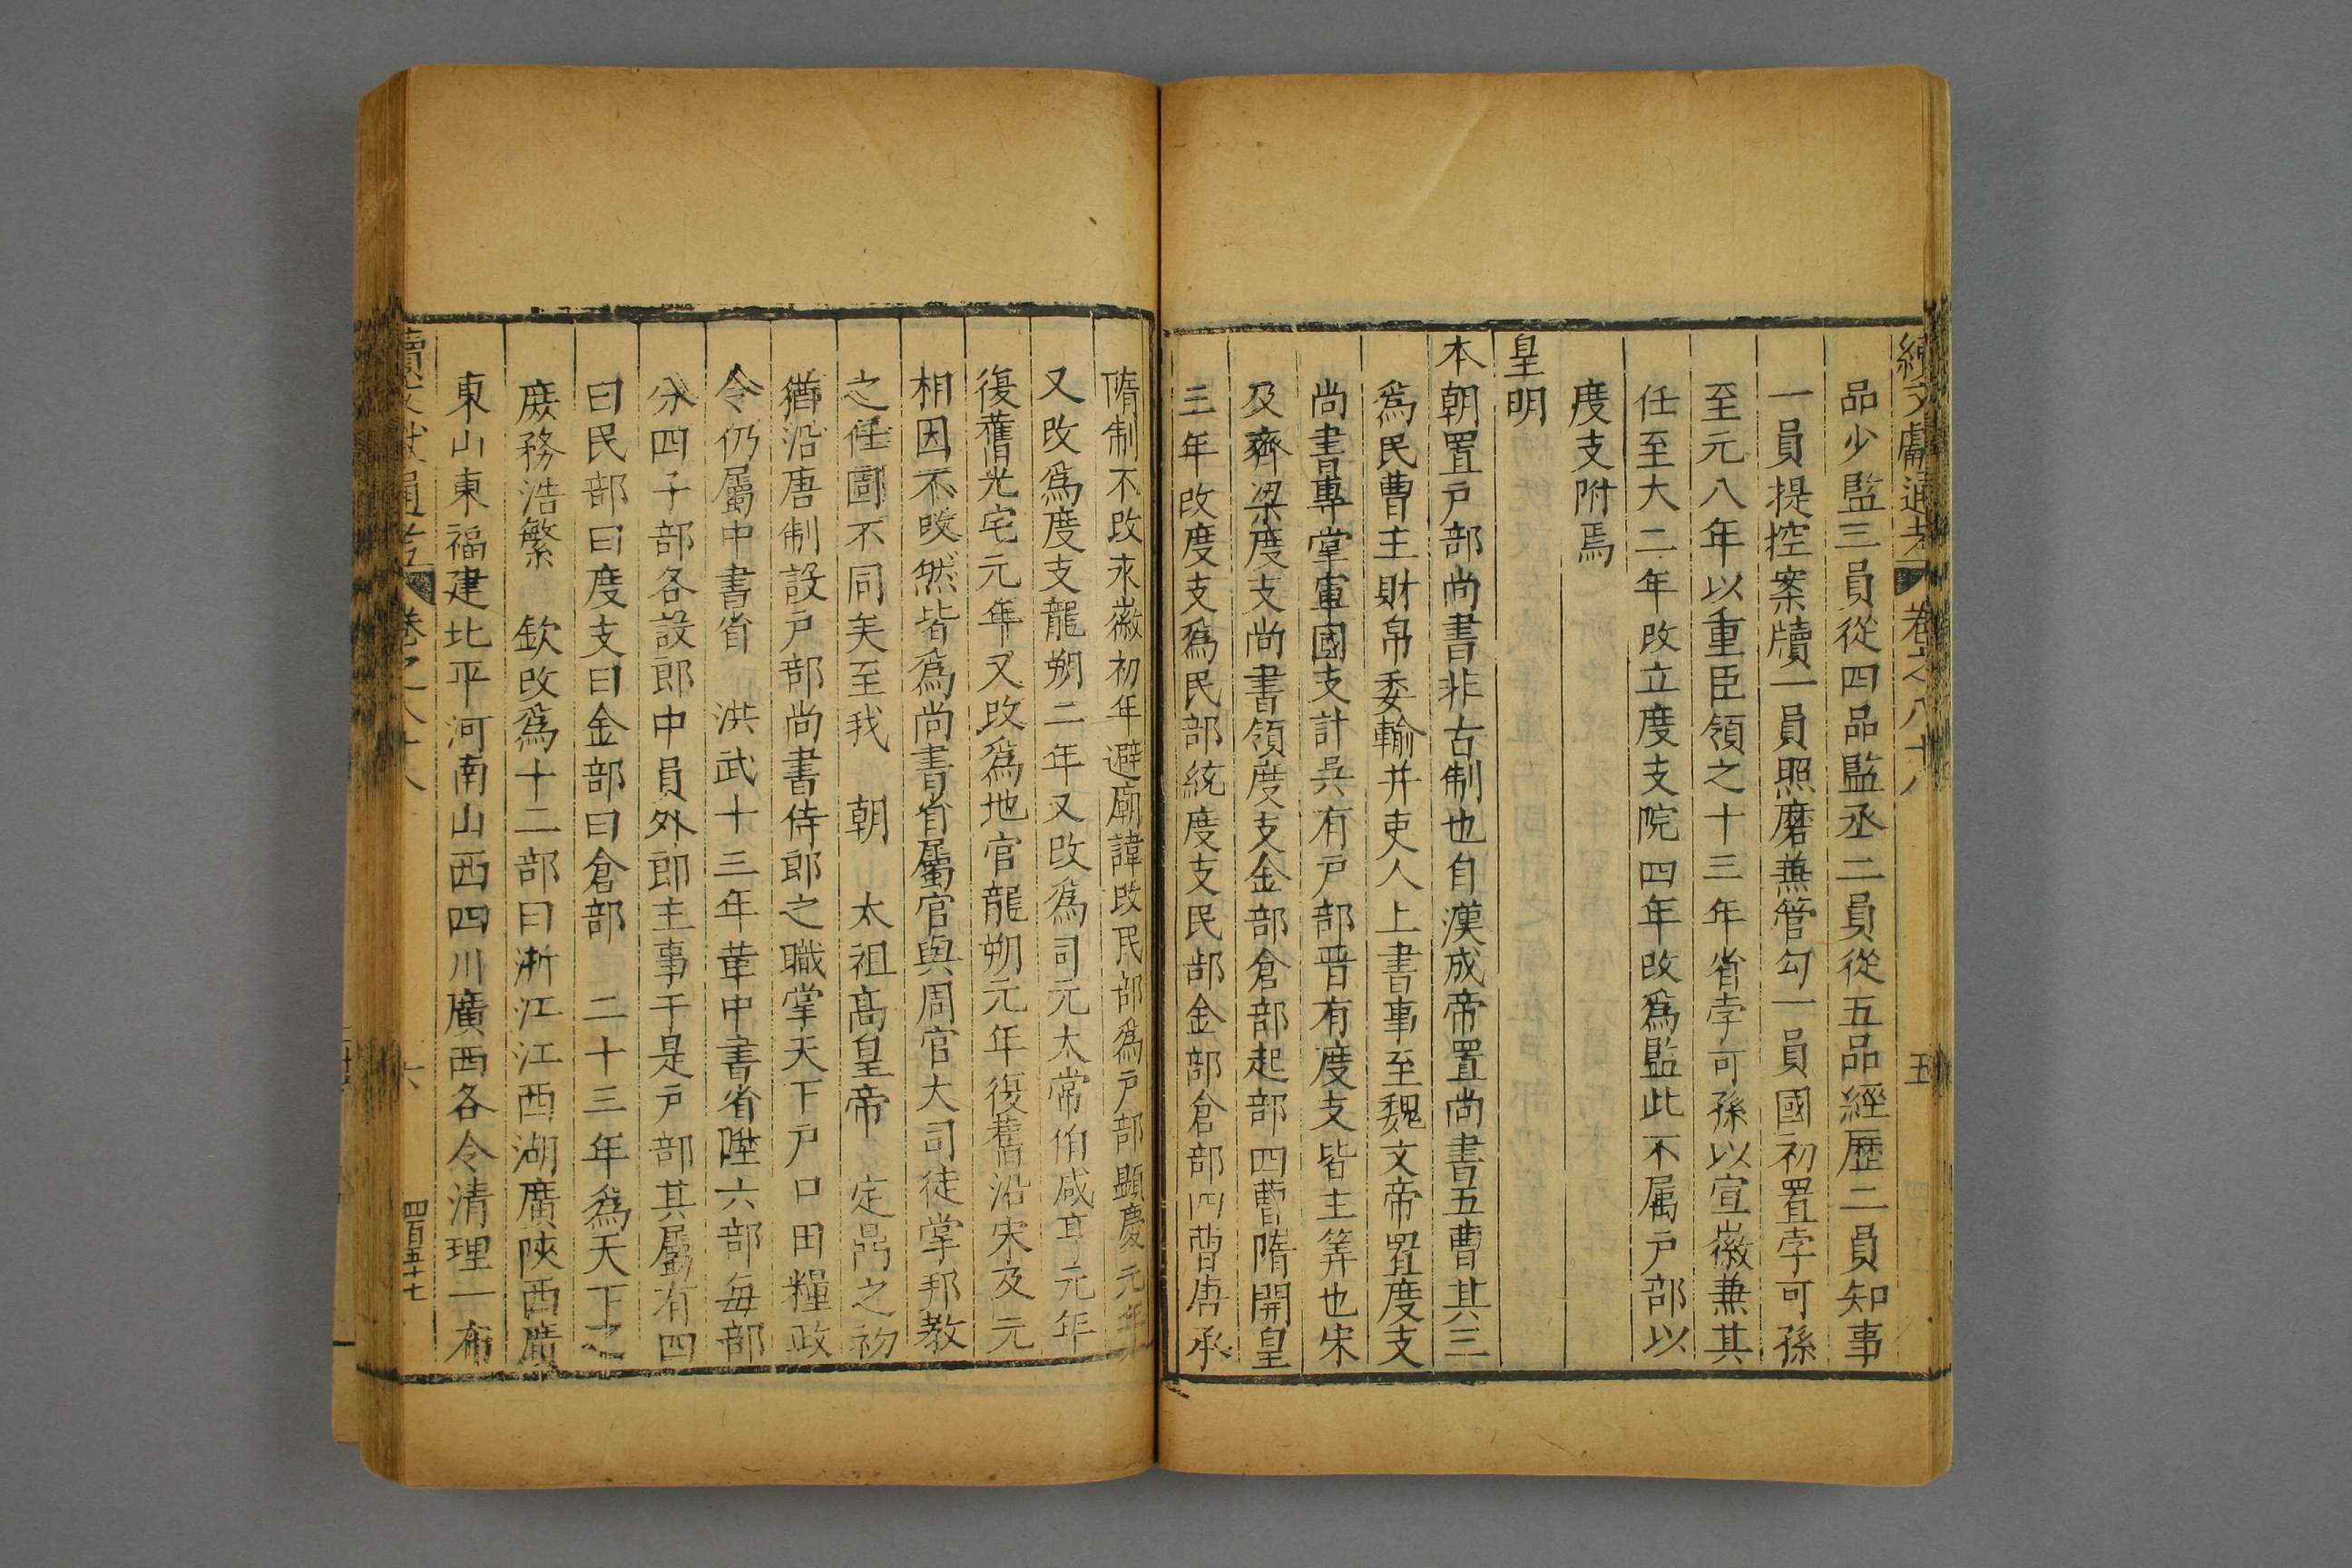 續文獻通考 卷之八十八 五
品少監三員從四品監丞二員從五品經歷二員知事
一員提控案牘一員照磨兼管勾一員國初置孛可孫
至元八年以重臣領之十三年省孛可孫以宣徽兼其
任至大二年改立度支院四年改爲監此不属户部以
度支附焉
皇明
本朝置户部尚書非古制也自漢成帝置尚書五曹其三
爲民曹主財帛委輸并吏人上書事至魏文帝置度支
尚書專掌軍國支計吳有户部晋有度支皆主筭也宋
及齊梁度支尚書領度支金部倉部起部四曹隋開皇
三年改度支爲民部統度支民部金部倉部四曹唐承
隋制不改永徽初年避廟諱改民部爲户部顯慶元年
又改爲度支龍朔二年又改爲司元太常伯咸亨元年
復舊光宅元年又改爲地官龍朔元年復舊沿宋及元
相因不改然皆爲尚書省屬官與周官大司徒掌邦教
之任固不同矣至我 朝 太祖高皇帝 定鼎之初
猶沿唐制設户部尚書侍郎之職掌天下户口田糧政
令仍屬中書省 洪武十三年革中書省陞六部每部
分四子部各設郎中員外郎主事于是户部其屬有四
曰民部曰度支曰金部曰倉部 二十三年爲天下之
庶務浩繁 欽改爲十二部曰浙江江西湖廣陝西廣
東山東福建北平河南山西四川廣西各令清理一布
續文獻通考 卷之八十八 六 四百五十七